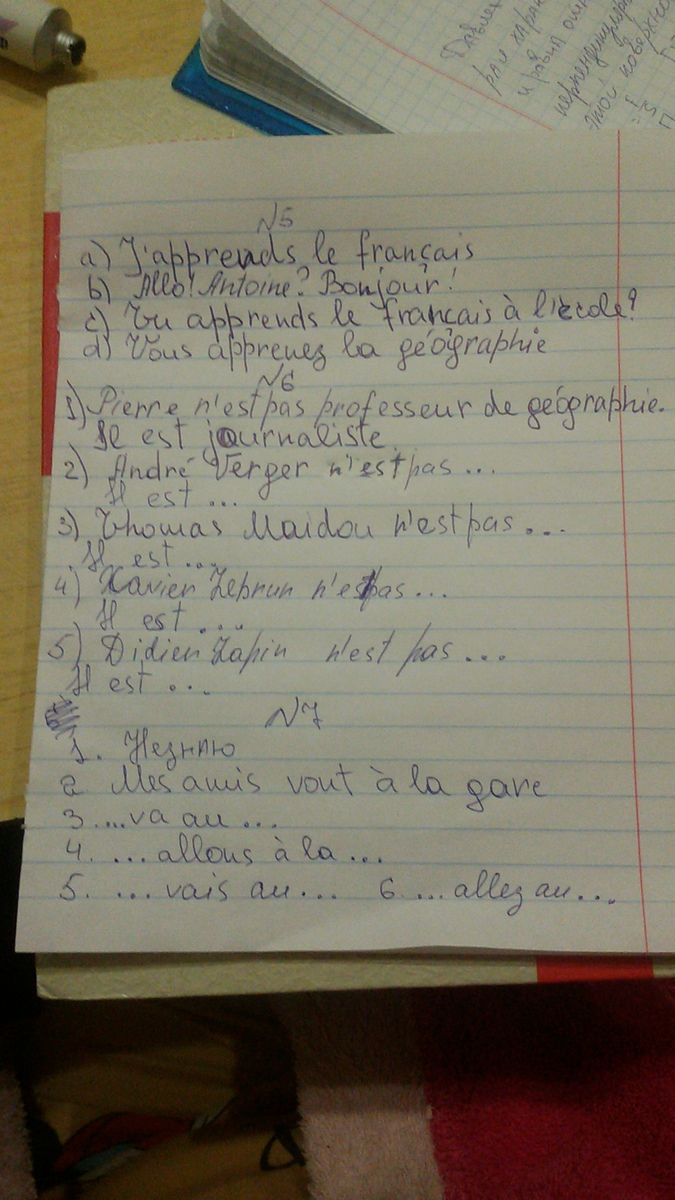 Давлен
рал харак
и равна
перпендикуляр
этой поверхно
N5
a) J'apprends le français
b) Allo! Antoine? Bonjour!
c) Tu apprends le français à l'école?
d) Vous apprenez la géographie
N6
1) Pierre n'est pas professeur de géographie.
Il est journaliste.
2) André Verger n'est pas ...
Il est ...
3) Thomas Maidou n'est pas ...
Il est ...
4) Xavier Lebrun n'est pas ...
Il est ...
5) Didier Lapin n'est pas ...
Il est ...
N7
1. Незнаю
2 Mes amis vont à la gare
3. ...va au ...
4. ... allons à la ...
5. ... vais au ... 6. ... allez au ...